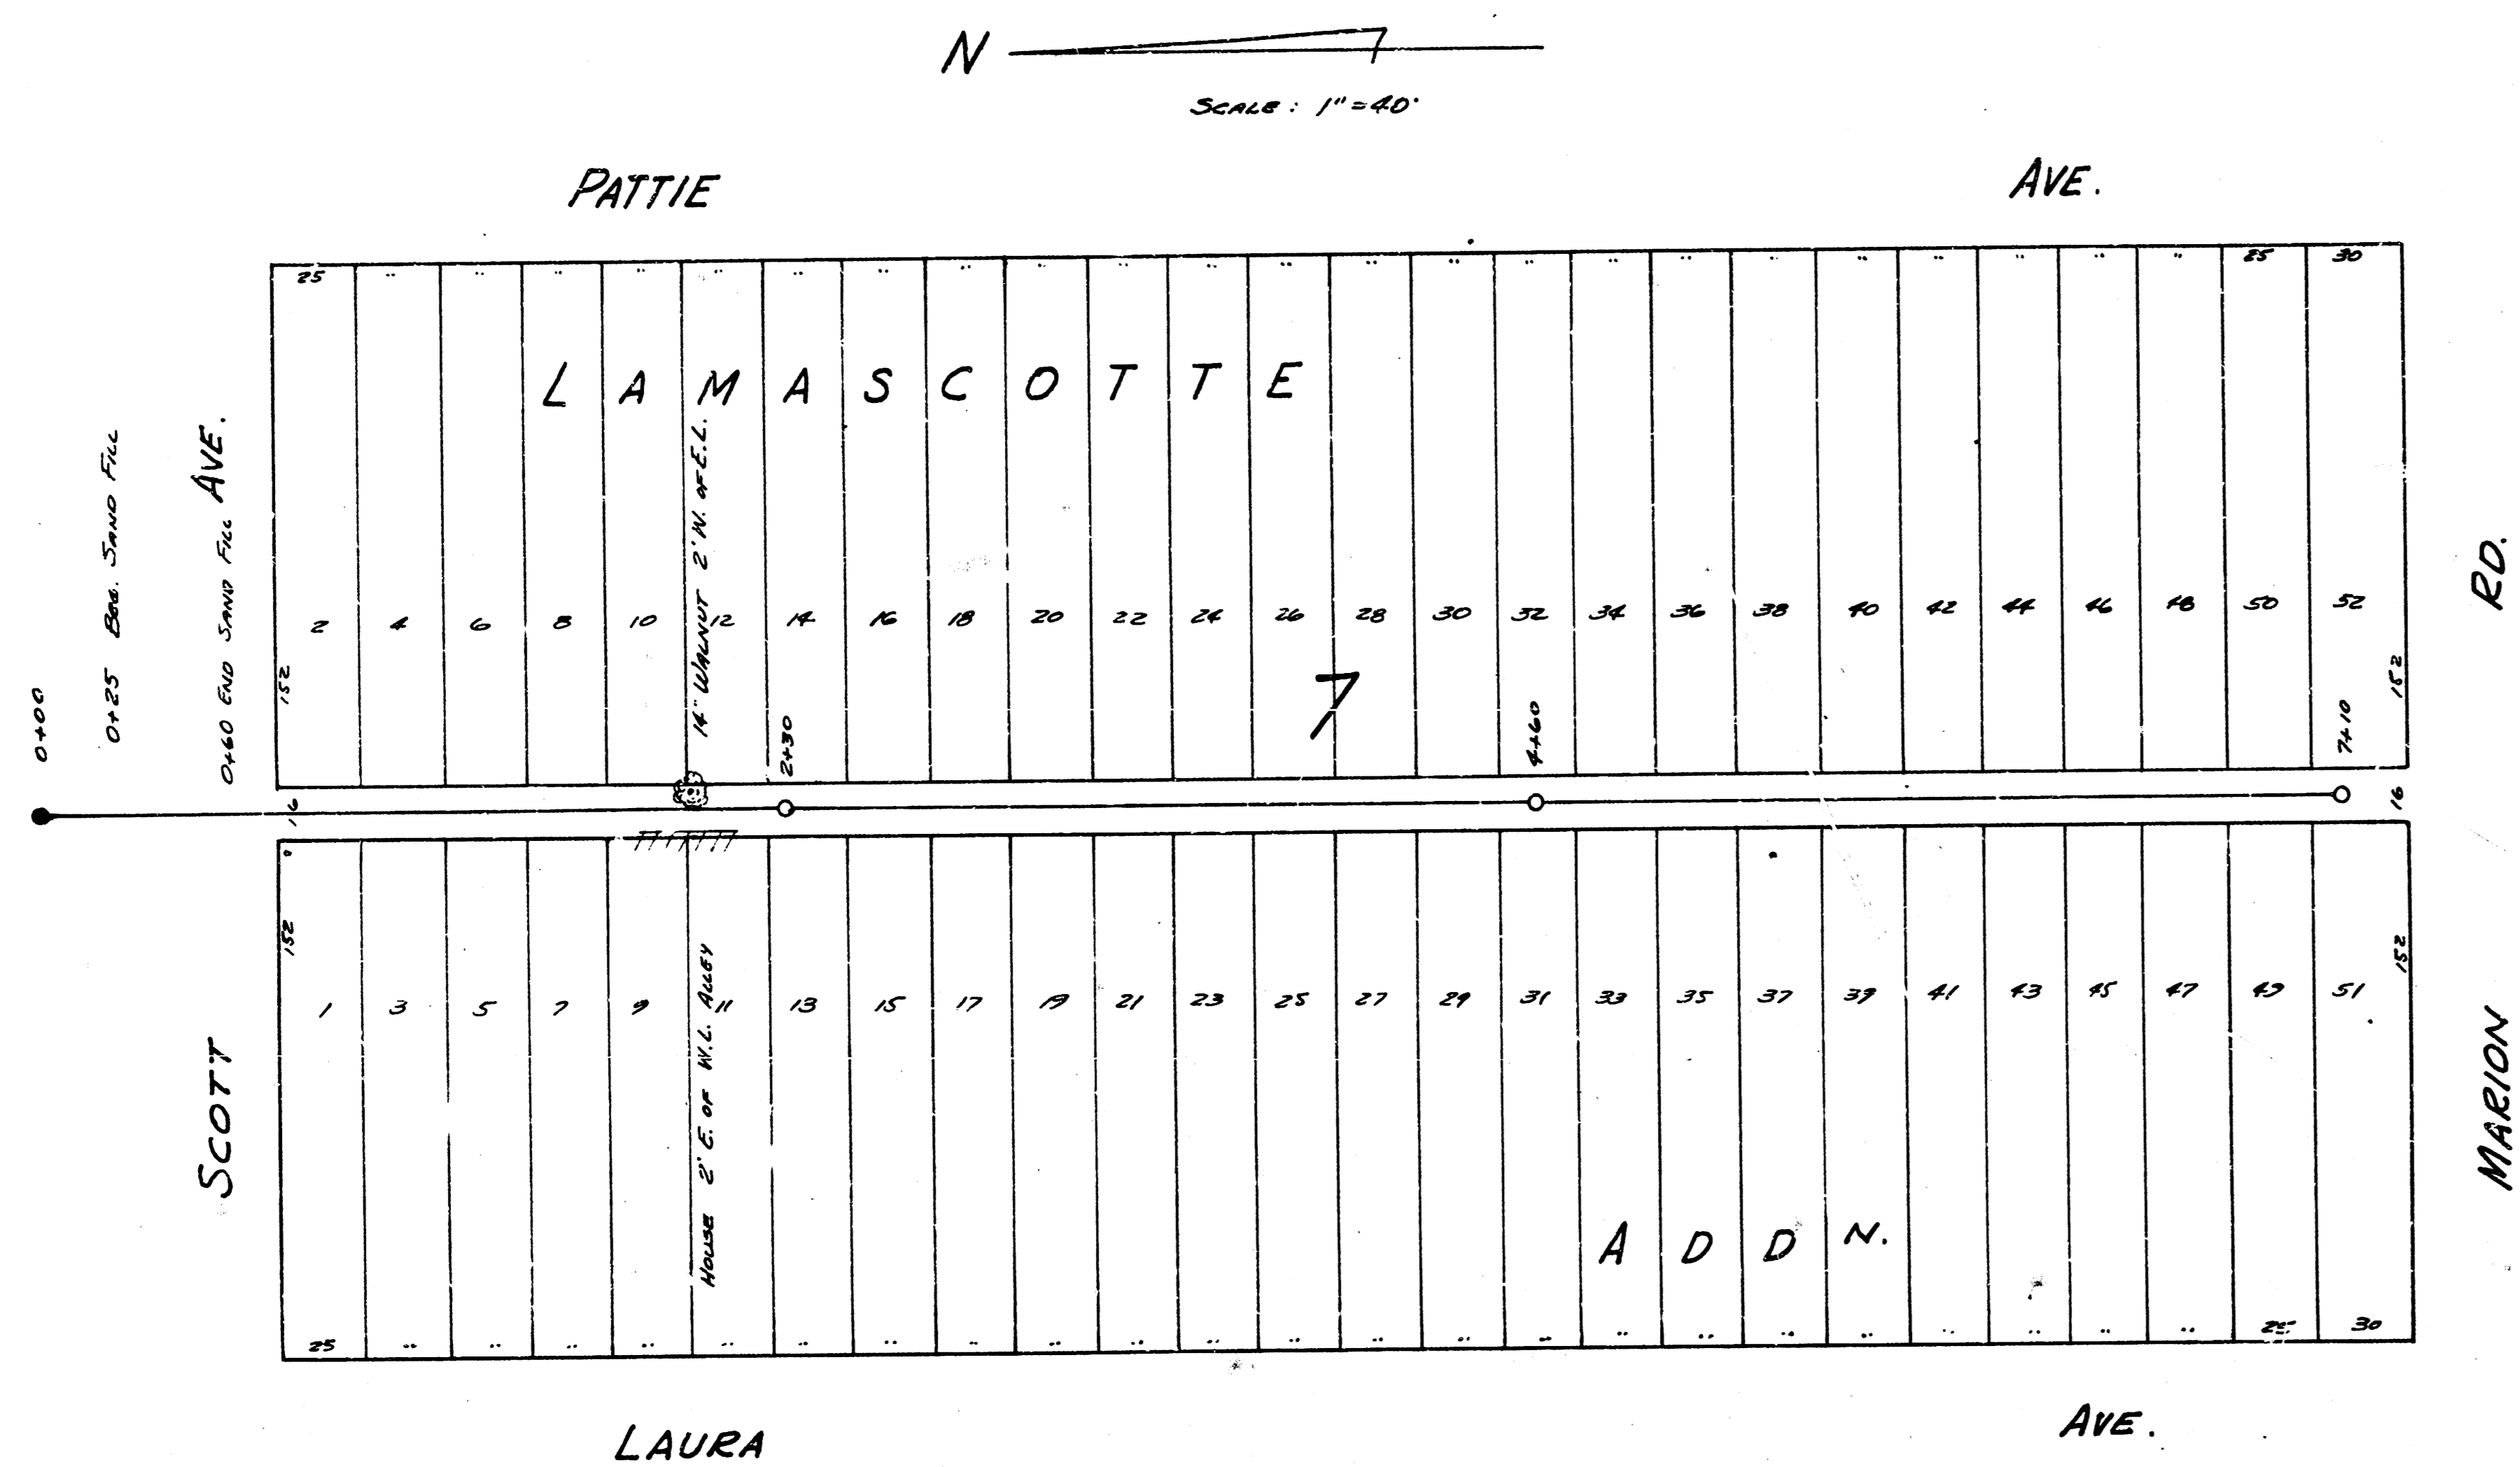 N
SCALE: 1"=40'
PATTIE AVE.
25 " " " " " " " " " " " " " " " " " " " " " " " 25 30
LAMASCOTTE
0+00
0+25 BEG. SAND FILL
0+60 END SAND FILL
SCOTT AVE.
14" WALNUT 2' W. OF E.L.
2 4 6 8 10 12 14 16 18 20 22 24 26 28 30 32 34 36 38 40 42 44 46 48 50 52
152 152
7
2+30 4+60 7+10
16 16
152 152
1 3 5 7 9 11 13 15 17 19 21 23 25 27 29 31 33 35 37 39 41 43 45 47 49 51
HOUSE 2' E. OF W.L. ALLEY
ADDN.
25 " " " " " " " " " " " " " " " " " " " " " " " 25 30
MARION RD.
LAURA AVE.